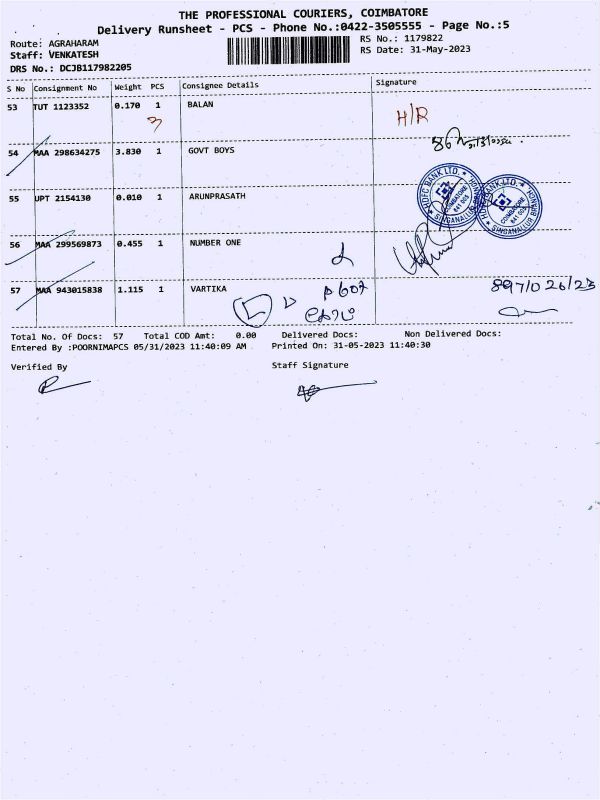 THE PROFESSIONAL COURIERS, COIMBATORE
Delivery Runsheet - PCS - Phone No.:0422-3505555 - Page No.:5
Route: AGRAHARAM RS No.: 1179822
Staff: VENKATESH RS Date: 31-May-2023
DRS No.: DCJB117982205
S No Consignment No Weight PCS Consignee Details Signature
53 TUT 1123352 0.170 1 BALAN H/R
3
54 MAA 298634275 3.830 1 GOVT BOYS
55 UPT 2154130 0.010 1 ARUNPRASATH
HDFC BANK LTD. COIMBATORE 641 005 SINGANALLUR BRANCH
HDFC BANK LTD. COIMBATORE 641 005 SINGANALLUR BRANCH
56 MAA 299569873 0.455 1 NUMBER ONE
57 MAA 943015838 1.115 1 VARTIKA
Total No. Of Docs: 57 Total COD Amt: 0.00 Delivered Docs: Non Delivered Docs:
Entered By :POORNIMAPCS 05/31/2023 11:40:09 AM Printed On: 31-05-2023 11:40:30
Verified By Staff Signature